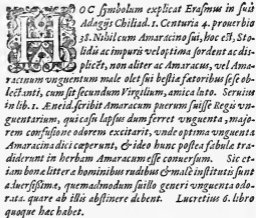 HOC symbolum explicat Erasmus in suis
Adagijs Chiliad. 1. Centuria 4. prouerbio
38. Nihil cum Amaracino sui, hoc est, Sto-
lidis ac impuris vel optima sordent ac dis-
plicēt, non aliter ac Amaracus, vel Ama-
racinum vnguentum male olet sui bestia fœtoribus sese ob-
lectanti, cum sit secundum Virgilium, amica luto. Seruius
in lib. 1. Æneid. scribit Amaracum puerum fuisse Regis vn-
guentarium, qui casu lapsus dum ferret vnguenta, maio-
rem confusione odorem excitarit, vnde optima vnguenta
Amaracina dici cœperunt, & ideo hunc postea fabulæ tra-
diderunt in herbam Amaracum esse conuersum. Sic et-
iam bonæ litteræ hominibus rudibus & male institutis sunt
auersissimæ, quemadmodum suillo generi vnguenta odo-
rata. quare ab illis abstinere debent. Lucretius 6. libro
quoque hæc habet.